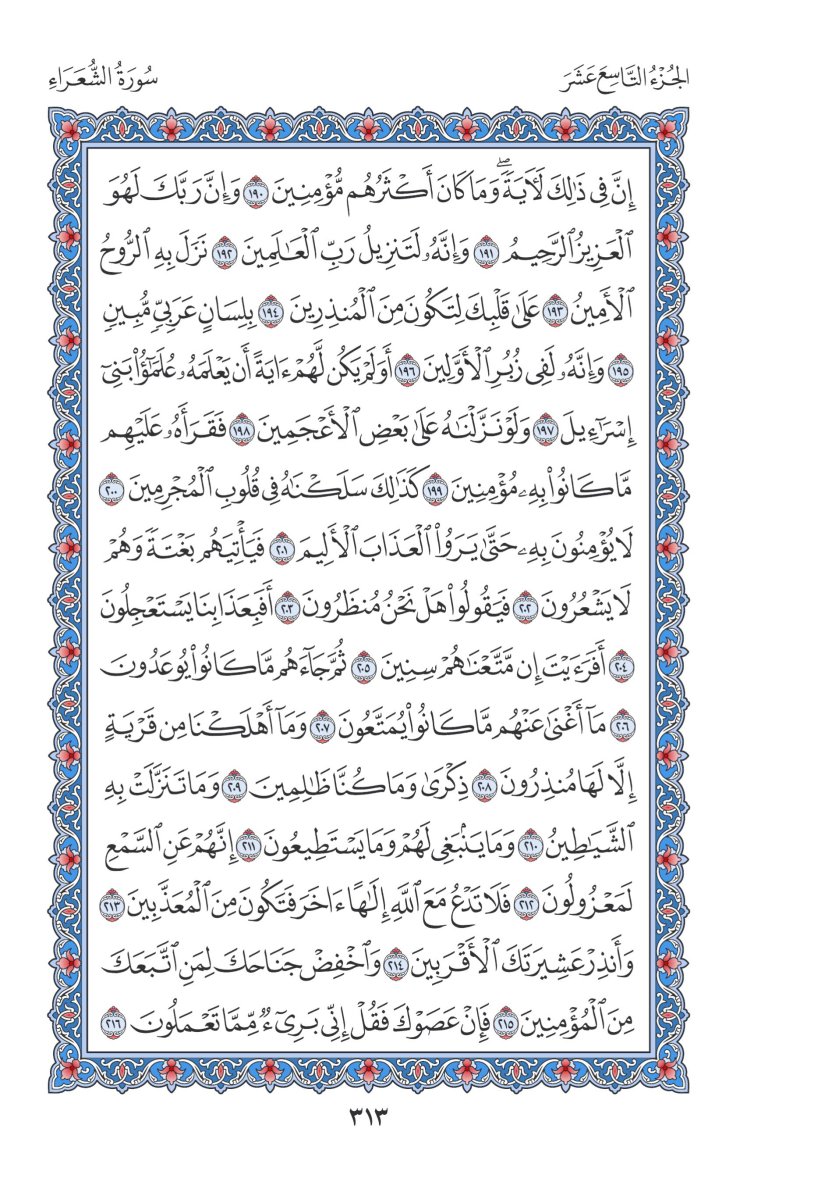 الجُزْءُ التَّاسِعَ عَشَرَ
سُورَةُ الشُّعَرَاءِ
إِنَّ فِى ذَٰلِكَ لَأٓيَةًۖ وَمَا كَانَ أَكْثَرُهُم مُّؤْمِنِينَ ١٩٠ وَإِنَّ رَبَّكَ لَهُوَ
ٱلْعَزِيزُ ٱلرَّحِيمُ ١٩١ وَإِنَّهُۥ لَتَنزِيلُ رَبِّ ٱلْعَٰلَمِينَ ١٩٢ نَزَلَ بِهِ ٱلرُّوحُ
ٱلْأَمِينُ ١٩٣ عَلَىٰ قَلْبِكَ لِتَكُونَ مِنَ ٱلْمُنذِرِينَ ١٩٤ بِلِسَانٍ عَرَبِىٍّ مُّبِينٍ
١٩٥ وَإِنَّهُۥ لَفِى زُبُرِ ٱلْأَوَّلِينَ ١٩٦ أَوَلَمْ يَكُن لَّهُمْ ءَايَةً أَن يَعْلَمَهُۥ عُلَمَٰٓؤُا۟ بَنِىٓ
إِسْرَٰٓءِيلَ ١٩٧ وَلَوْ نَزَّلْنَٰهُ عَلَىٰ بَعْضِ ٱلْأَعْجَمِينَ ١٩٨ فَقَرَأَهُۥ عَلَيْهِم
مَّا كَانُوا۟ بِهِۦ مُؤْمِنِينَ ١٩٩ كَذَٰلِكَ سَلَكْنَٰهُ فِى قُلُوبِ ٱلْمُجْرِمِينَ ٢٠٠
لَا يُؤْمِنُونَ بِهِۦ حَتَّىٰ يَرَوُا۟ ٱلْعَذَابَ ٱلْأَلِيمَ ٢٠١ فَيَأْتِيَهُم بَغْتَةً وَهُمْ
لَا يَشْعُرُونَ ٢٠٢ فَيَقُولُوا۟ هَلْ نَحْنُ مُنظَرُونَ ٢٠٣ أَفَبِعَذَابِنَا يَسْتَعْجِلُونَ
٢٠٤ أَفَرَءَيْتَ إِن مَّتَّعْنَٰهُمْ سِنِينَ ٢٠٥ ثُمَّ جَآءَهُم مَّا كَانُوا۟ يُوعَدُونَ
٢٠٦ مَآ أَغْنَىٰ عَنْهُم مَّا كَانُوا۟ يُمَتَّعُونَ ٢٠٧ وَمَآ أَهْلَكْنَا مِن قَرْيَةٍ
إِلَّا لَهَا مُنذِرُونَ ٢٠٨ ذِكْرَىٰ وَمَا كُنَّا ظَٰلِمِينَ ٢٠٩ وَمَا تَنَزَّلَتْ بِهِ
ٱلشَّيَٰطِينُ ٢١٠ وَمَا يَنۢبَغِى لَهُمْ وَمَا يَسْتَطِيعُونَ ٢١١ إِنَّهُمْ عَنِ ٱلسَّمْعِ
لَمَعْزُولُونَ ٢١٢ فَلَا تَدْعُ مَعَ ٱللَّهِ إِلَٰهًا ءَاخَرَ فَتَكُونَ مِنَ ٱلْمُعَذَّبِينَ ٢١٣
وَأَنذِرْ عَشِيرَتَكَ ٱلْأَقْرَبِينَ ٢١٤ وَٱخْفِضْ جَنَاحَكَ لِمَنِ ٱتَّبَعَكَ
مِنَ ٱلْمُؤْمِنِينَ ٢١٥ فَإِنْ عَصَوْكَ فَقُلْ إِنِّى بَرِىٓءٌ مِّمَّا تَعْمَلُونَ ٢١٦
٣١٣